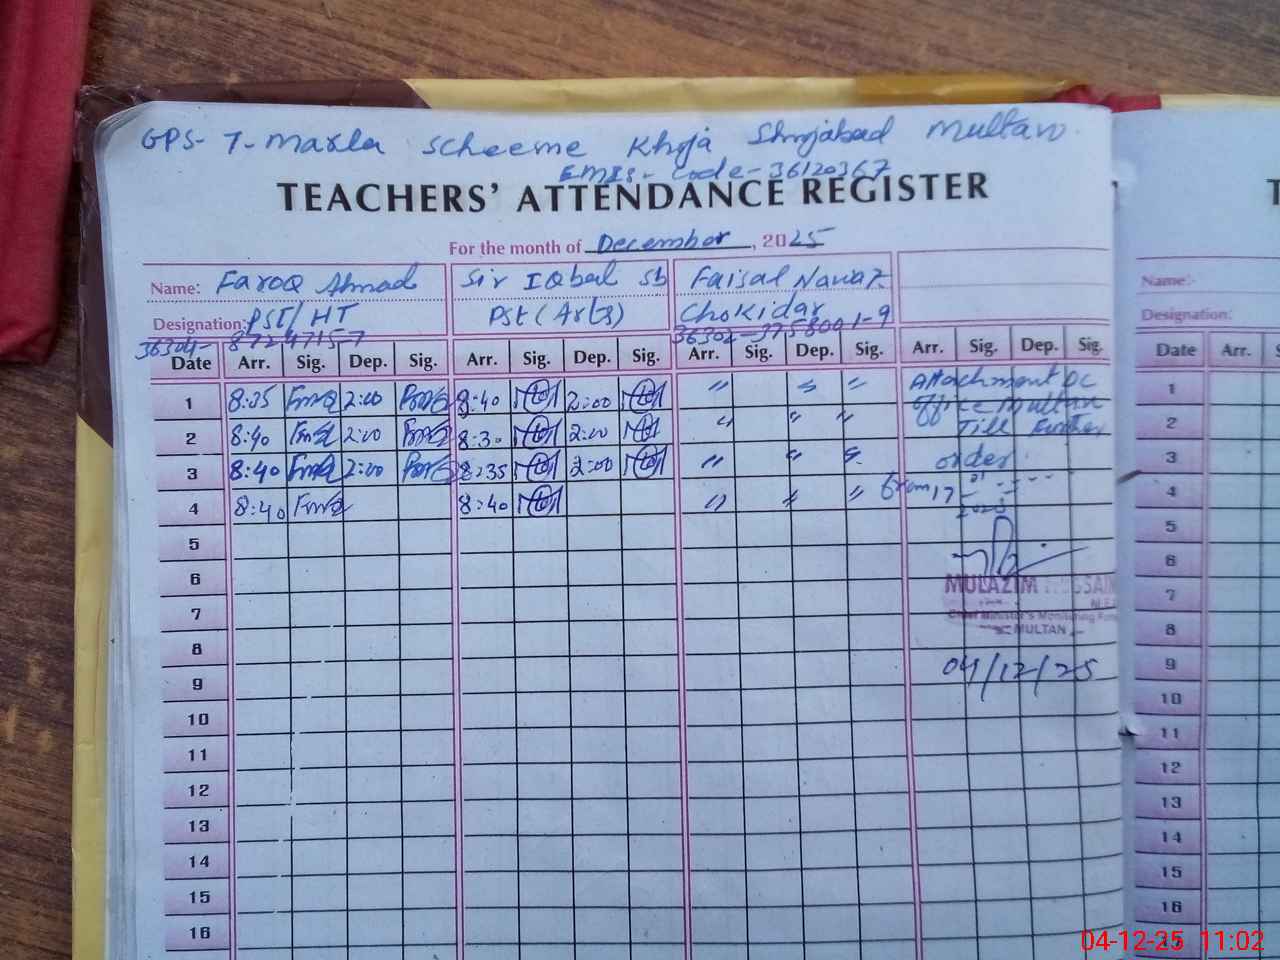 GPS- 7- Marla Scheeme Khoja Shujabad Multan
EMIS- Code- 36120367
TEACHERS' ATTENDANCE REGISTER
For the month of December, 2025
Name: Farooq Ahmad Sir IQbal Sb Faisal Nawaz
Designation: PST/HT Pst (Arts) Chokidar
36304- 8724715-7 36302-3758001-9
Date Arr. Sig. Dep. Sig. Arr. Sig. Dep. Sig. Arr. Sig. Dep. Sig. Arr. Sig. Dep. Sig.
1 8:35 2:00 8:40 2:00 " " " Attachment DC
office Multan
2 8:40 2:00 8:30 2:00 " " " Till Further
3 8:40 2:00 8:35 2:00 " " " order
4 8:40 8:40 " " " From 17
2025
5
6
MULAZIM HUSSAIN
7
Chief Minister's Monitoring Force
MULTAN
8
9 04/12/25
10
11
12
13
14
15
16
T
Name:-
Designation:
Date Arr.
1
2
3
4
5
6
7
8
9
10
11
12
13
14
15
16
04-12-25 11:02